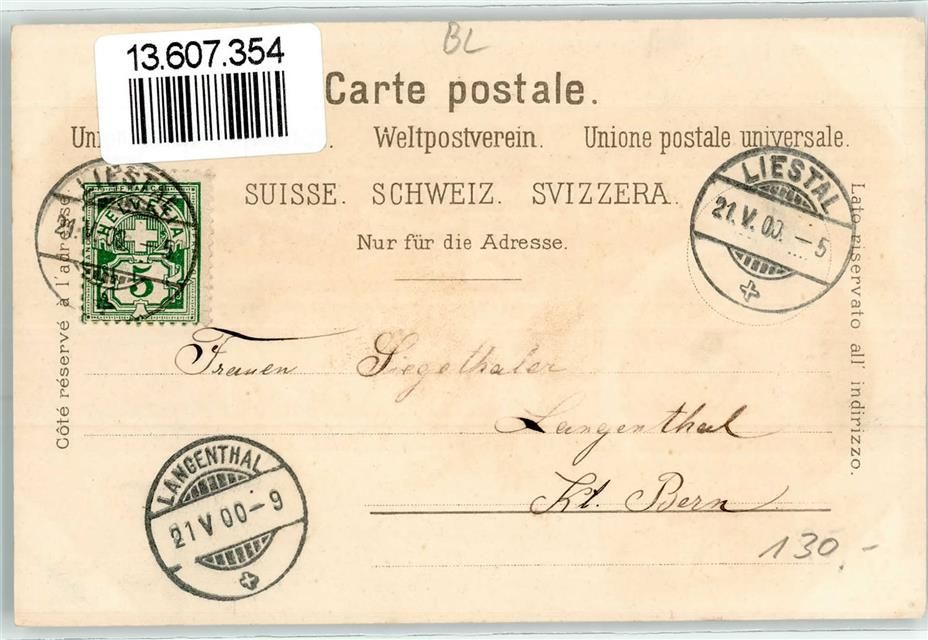 13.607.354
BL
Carte postale.
Weltpostverein. Unione postale universale.
SUISSE. SCHWEIZ. SVIZZERA.
Nur für die Adresse.
Côté réservé à l'adresse
Lato riservato all' indirizzo.
LIESTAL
21.V.00.-5
HELVETIA
5
LIESTAL
21.V.00.-5
Frauen Siegethaler
Langenthal
Kt. Bern
LANGENTHAL
21 V 00-9
130.-